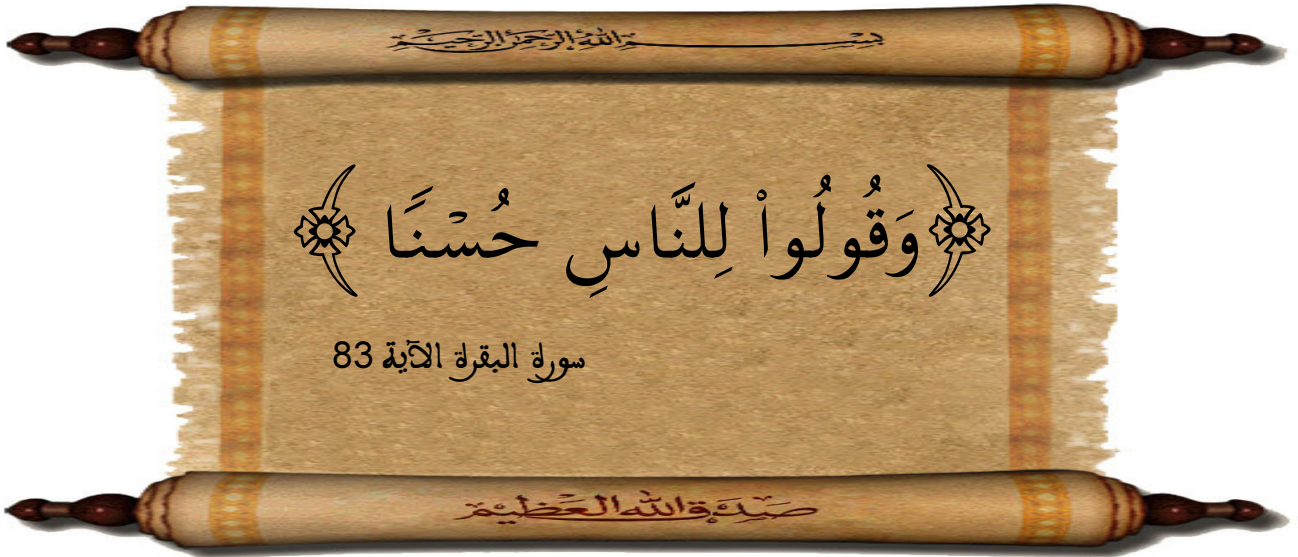 بسم الله الرحمن الرحيم
﴿وَقُولُواْ لِلنَّاسِ حُسْنًا ﴾
سورة البقرة الآية 83
صدق الله العظيم